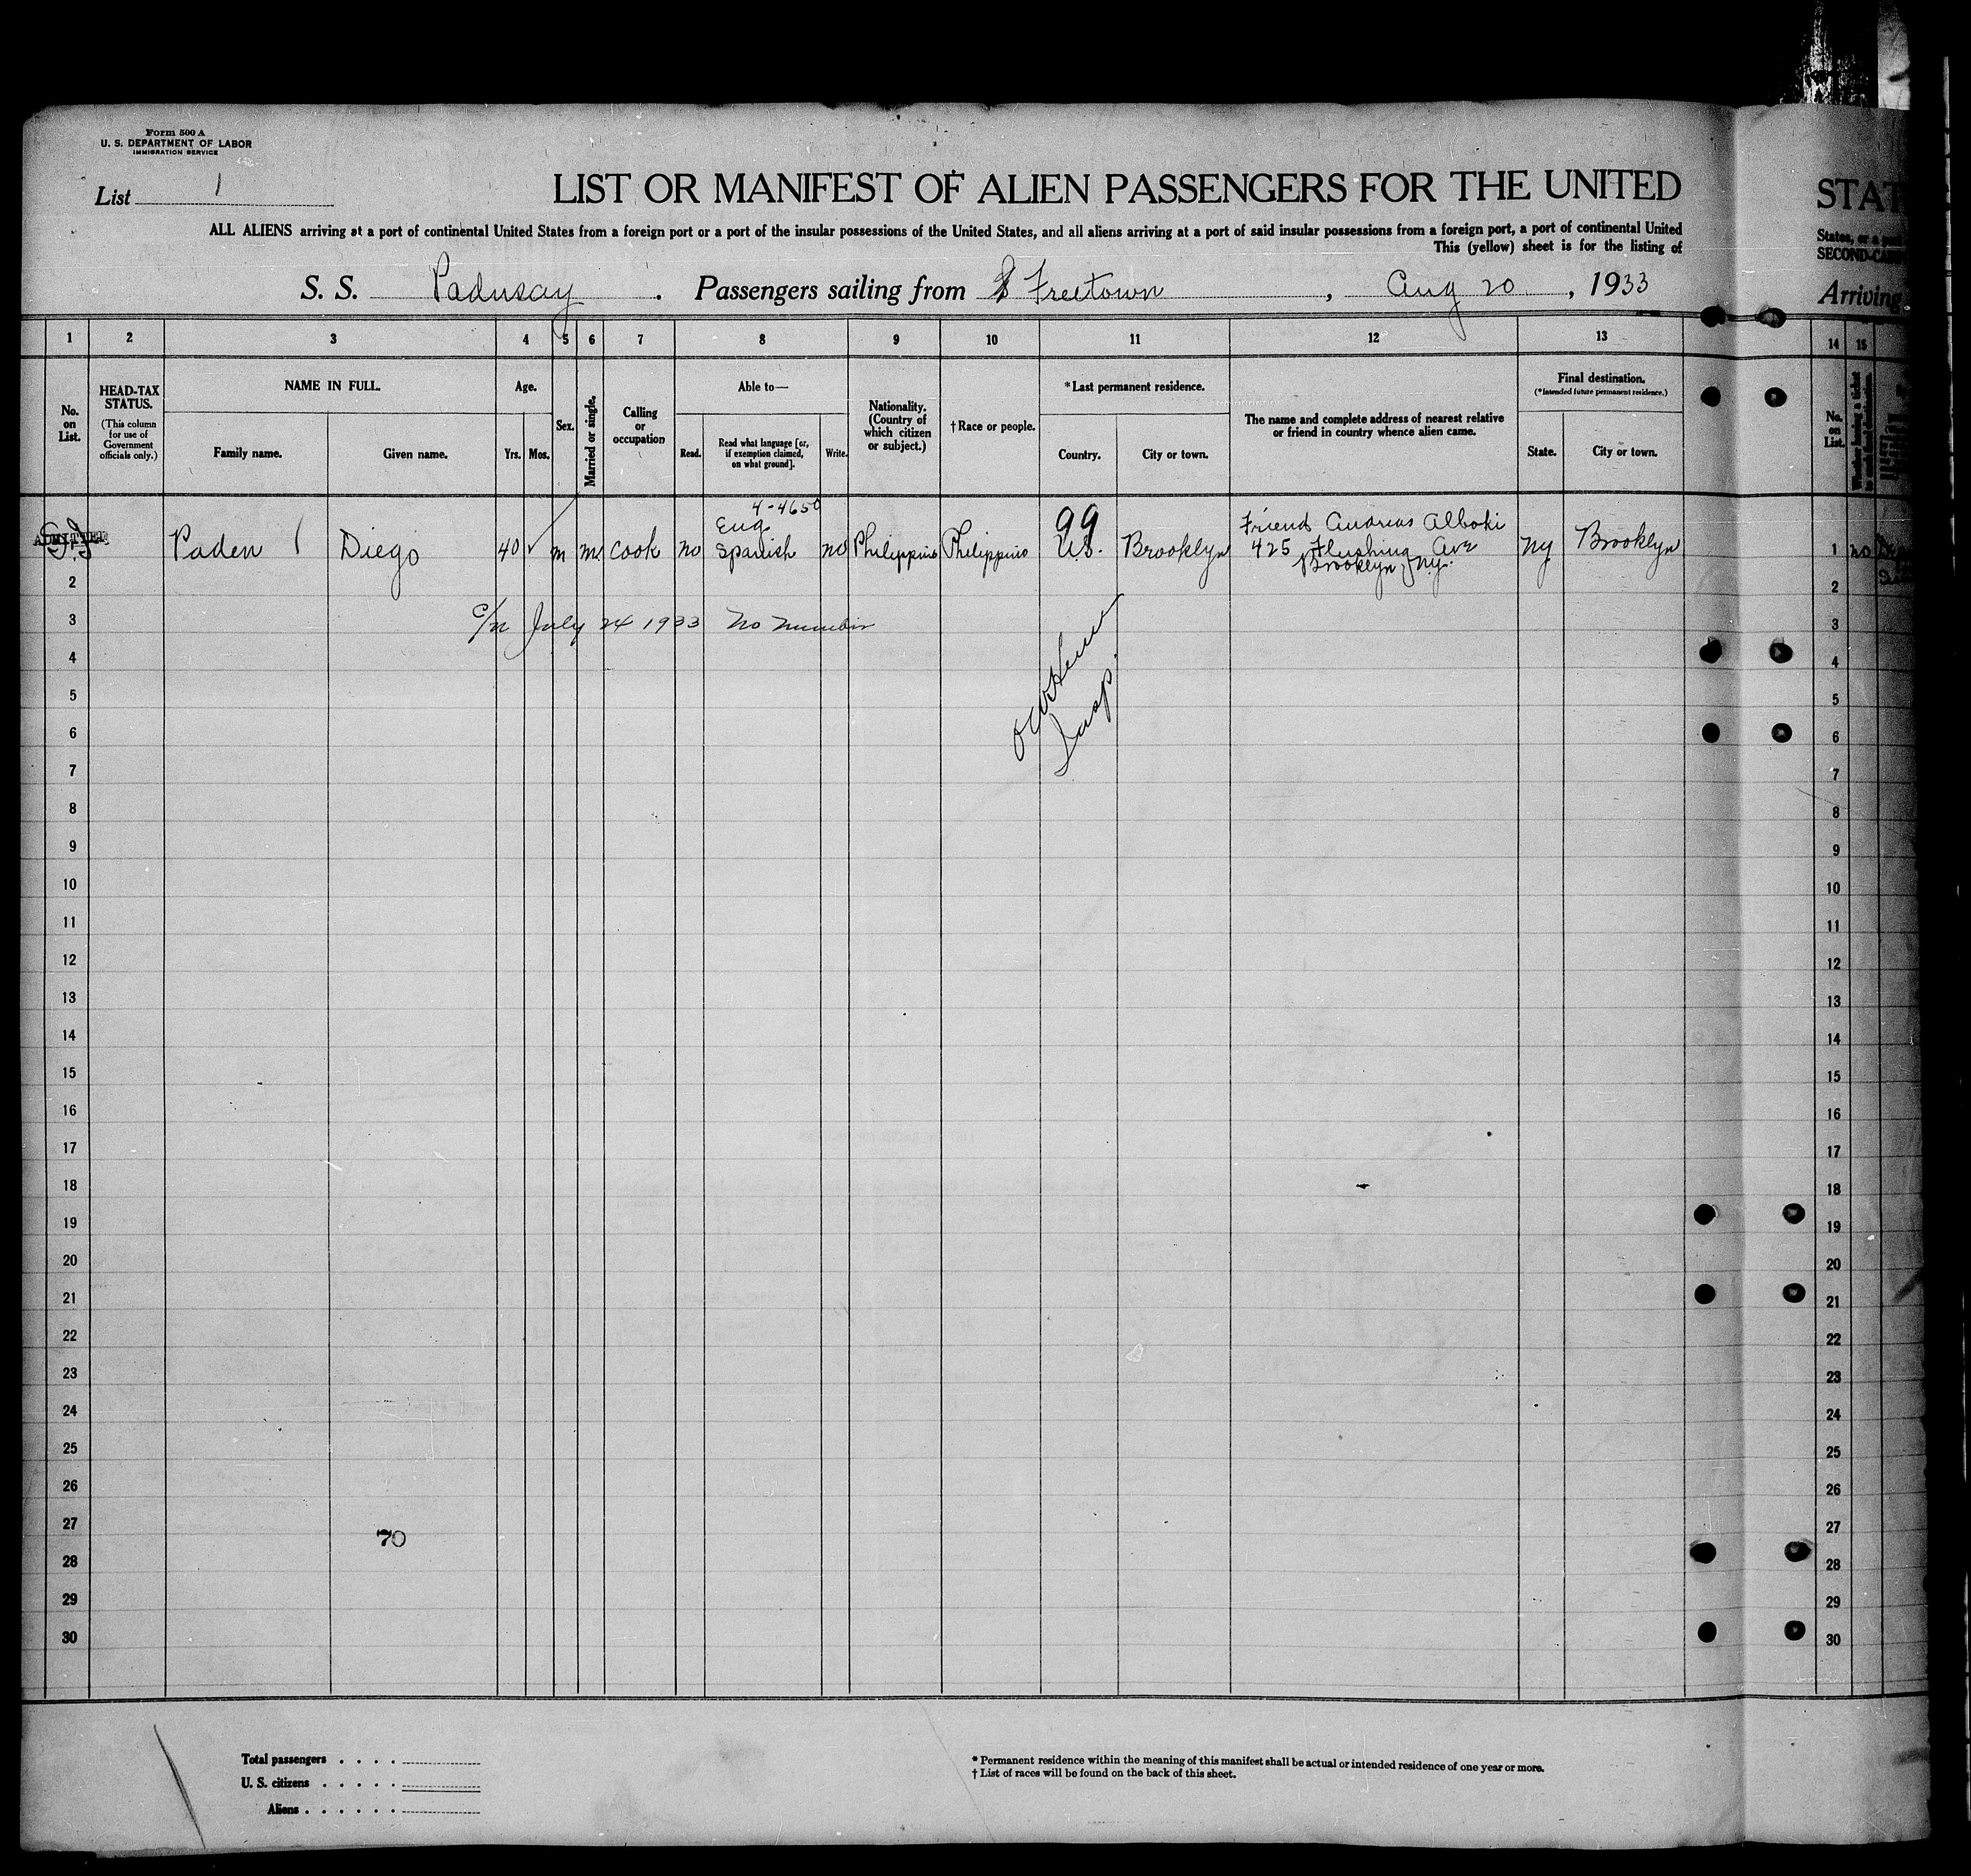 Form 500 A
U. S. DEPARTMENT OF LABOR
IMMIGRATION SERVICE
List 1
LIST OR MANIFEST OF ALIEN PASSENGERS FOR THE UNITED
STAT
ALL ALIENS arriving at a port of continental United States from a foreign port or a port of the insular possessions of the United States, and all aliens arriving at a port of said insular possessions from a foreign port, a port of continental United
States, or a
This (yellow) sheet is for the listing of
SECOND-CA
S. S. Padnsay . Passengers sailing from Freetown , Aug 20 , 1933
Arriving
1 2 3 4 5 6 7 8 9 10 11 12 13 14 15
No. on List.
HEAD-TAX STATUS.
(This column for use of Government officials only.)
NAME IN FULL.
Family name.
Given name.
Age.
Yrs. Mos.
Sex.
Married or single.
Calling or occupation
Able to—
Read.
Read what language [or, if exemption claimed, on what ground].
Write.
Nationality. (Country of which citizen or subject.)
† Race or people.
*Last permanent residence.
Country.
City or town.
The name and complete address of nearest relative or friend in country whence alien came.
Final destination.
(*Intended future permanent residence.)
State.
City or town.
No. on List.
4-4650
ADMITTED
Paden Diego 40 m m cook no Eng Spanish no Philippins Philippins 99 U.S. Brooklyn Friend Andrias Alboki 425 Flushing Ave Brooklyn, Ny. Ny Brooklyn 1 no
2 2
c/m July 24 1933 No Number
3 3
4 4
5 5
Insp.
6 6
7 7
8 8
9 9
10 10
11 11
12 12
13 13
14 14
15 15
16 16
17 17
18 18
19 19
20 20
21 21
22 22
23 23
24 24
25 25
26 26
27 27
70
28 28
29 29
30 30
Total passengers . . . .
U. S. citizens . . . . .
Aliens . . . . . .
* Permanent residence within the meaning of this manifest shall be actual or intended residence of one year or more.
† List of races will be found on the back of this sheet.